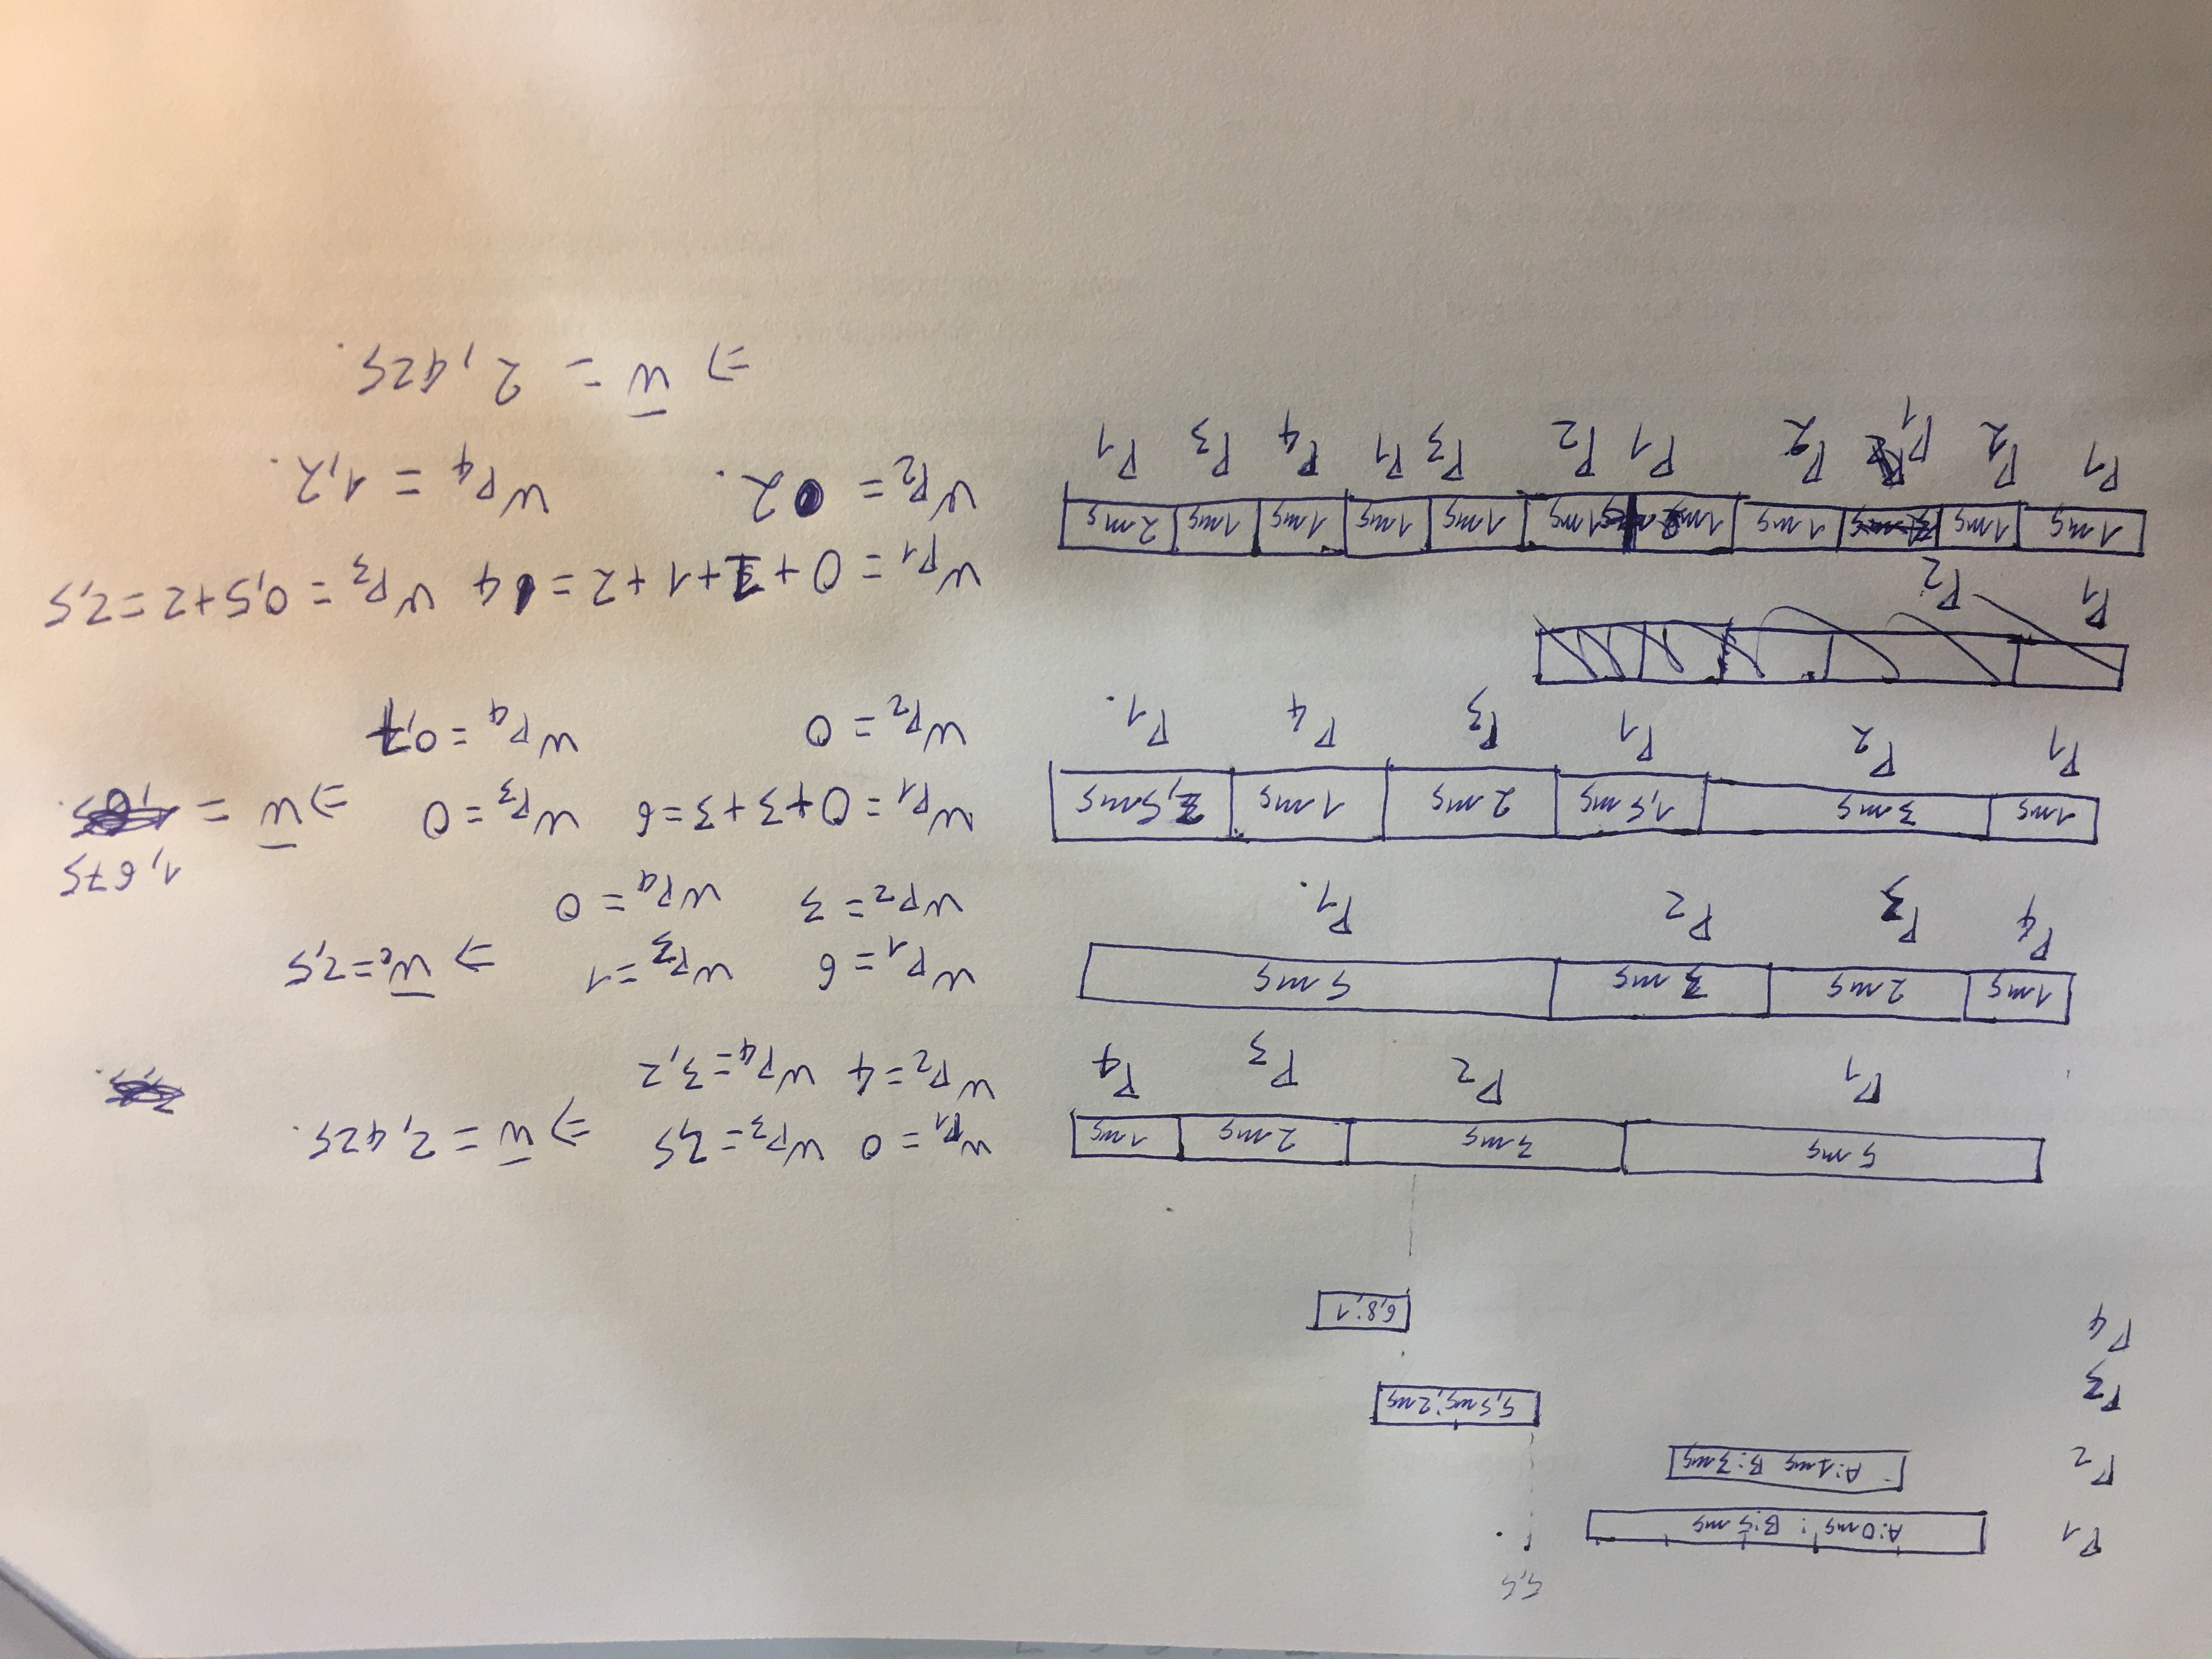 5,5
P1 A:0ms ; B:5ms
P2 A:1ms B:3ms
P3 5,5ms;2ms
P4 6,8;1
5ms 3ms 2ms 1ms
P1 P2 P3 P4
wP1 = 0 wP3 = 2,5 ⇒ w̄ = 2,425.
wP2 = 4 wP4 = 3,2
1ms 2ms 3ms 5ms
P4 P3 P2 P1.
wP1 = 6 wP3 = 1 ⇒ w̄ = 2,5
wP2 = 3 wP4 = 0
1ms 3ms 1,5ms 2ms 1ms 2,5ms
P1 P2 P1 P3 P4 P1.
wP1 = 0+3+3=6 wP3 = 0 ⇒ w̄ = 1,675
wP2 = 0 wP4 = 0,7
P1 P2
1ms 1ms 1ms 1ms 1ms 1ms 1ms 1ms 1ms 2ms
P1 P2 P1 P2 P1 P2 P3 P1 P4 P3 P1
wP1 = 0+1+1+2 = 4 wP3 = 0,5+2=2,5
wP2 = 2. wP4 = 1,2.
⇒ w̄ = 2,425.